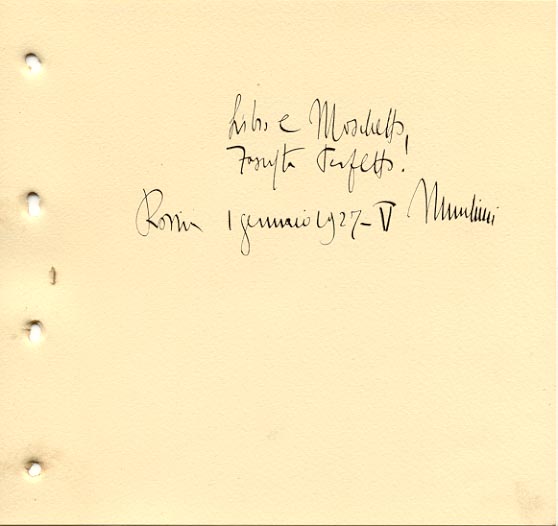 Libro e Moschetto,
Fascista Perfetto!
Roma 1 gennaio 1927-V Mussolini